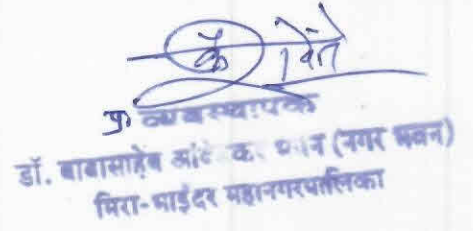 प्र व्यवस्थापक
डॉ. बाबासाहेब आंबेडकर भवन (नगर भवन)
मिरा-भाईंदर महानगरपालिका